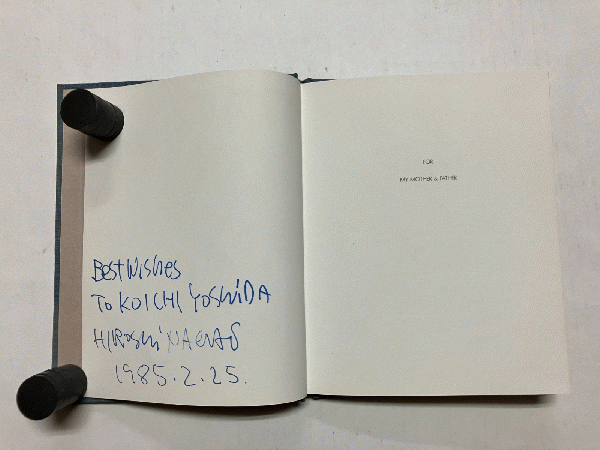 Best Wishes
To KOICHI YOSHiDA
HIROSHi
1985.2.25.
FOR
MY MOTHER & FATHER